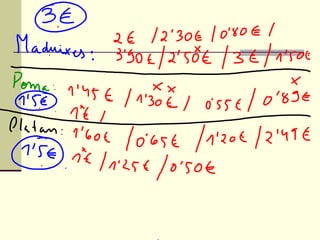 3€
2€ / 2'30€ / 0'80€ /
Maduixes: 3'90€ / 2'50€ / 3€ / 1'50€
x
Poma: 1'45€ / 1'30€ / 0'55€ / 0'89€
x x x
1'5€ 1€ /
Platan: 1'60€ / 0'65€ / 1'20€ / 2'49€
1'5€ 1€ / 1'25€ / 0'50€
x